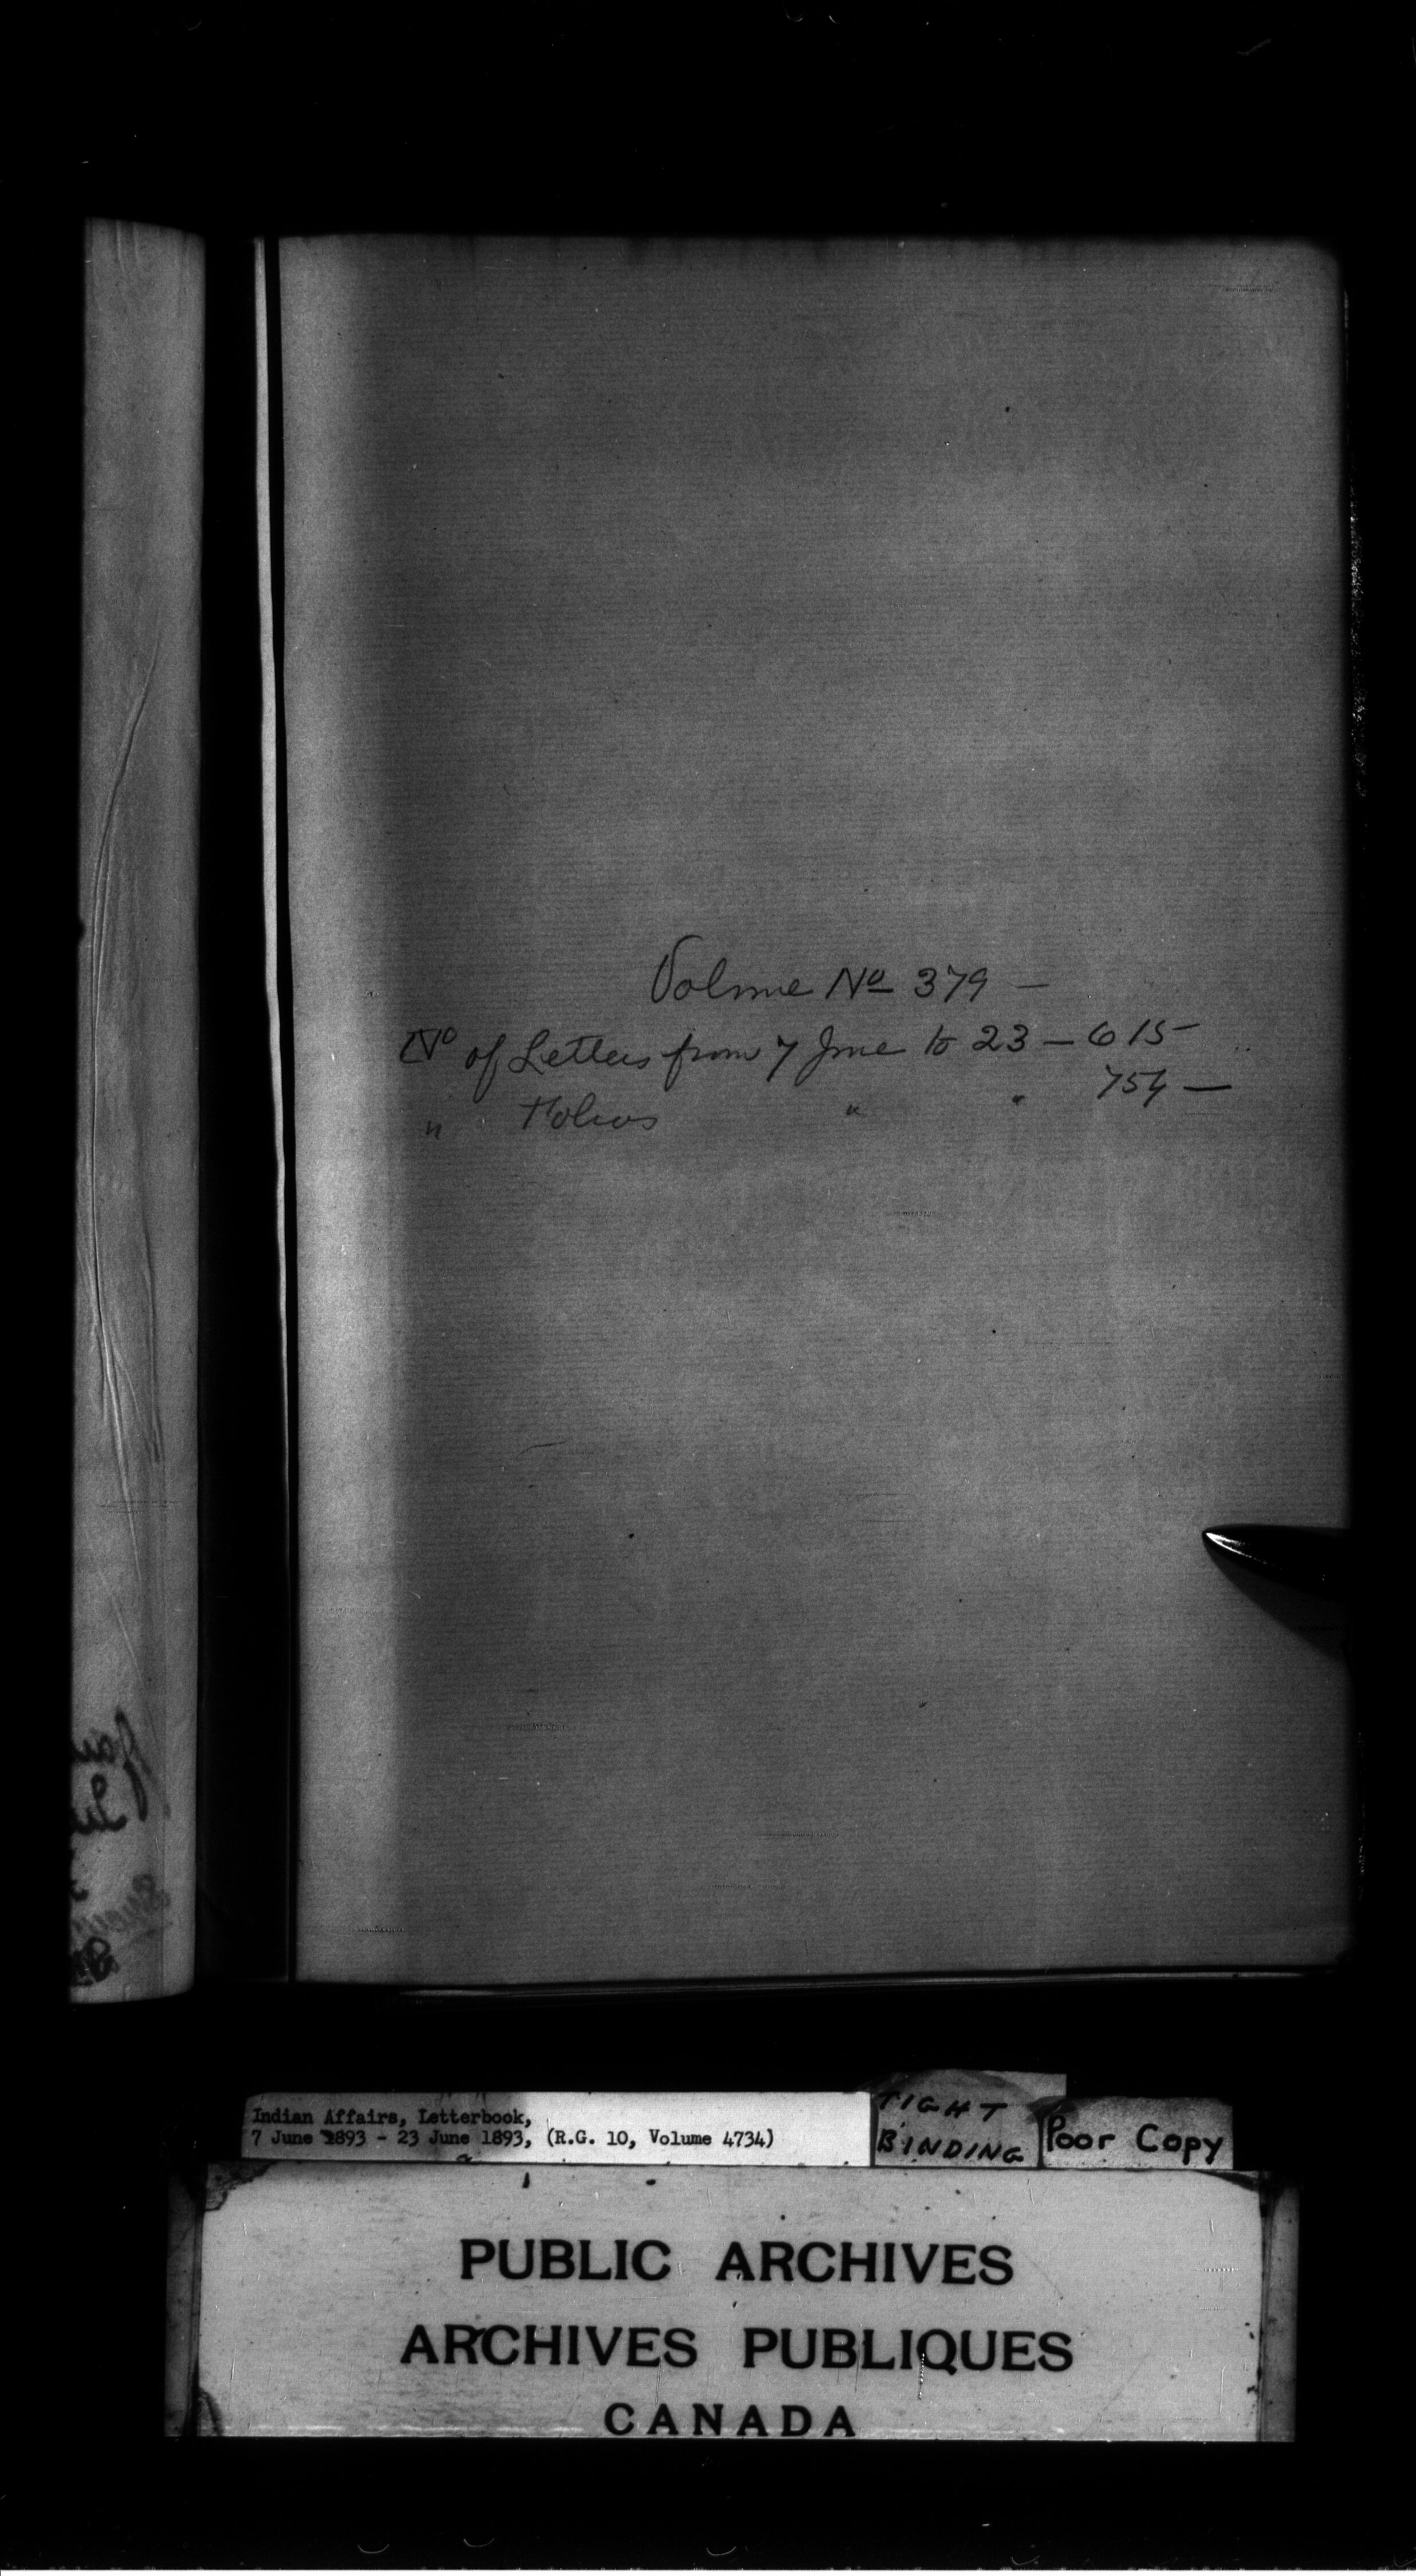 Volume No 379 —
No of Letters from 7 June to 23 — 615 —
" Folios " " 754 —
Indian Affairs, Letterbook,
7 June 1893 - 23 June 1893, (R.G. 10, Volume 4734)
TIGHT
BINDING
Poor Copy
PUBLIC ARCHIVES
ARCHIVES PUBLIQUES
CANADA